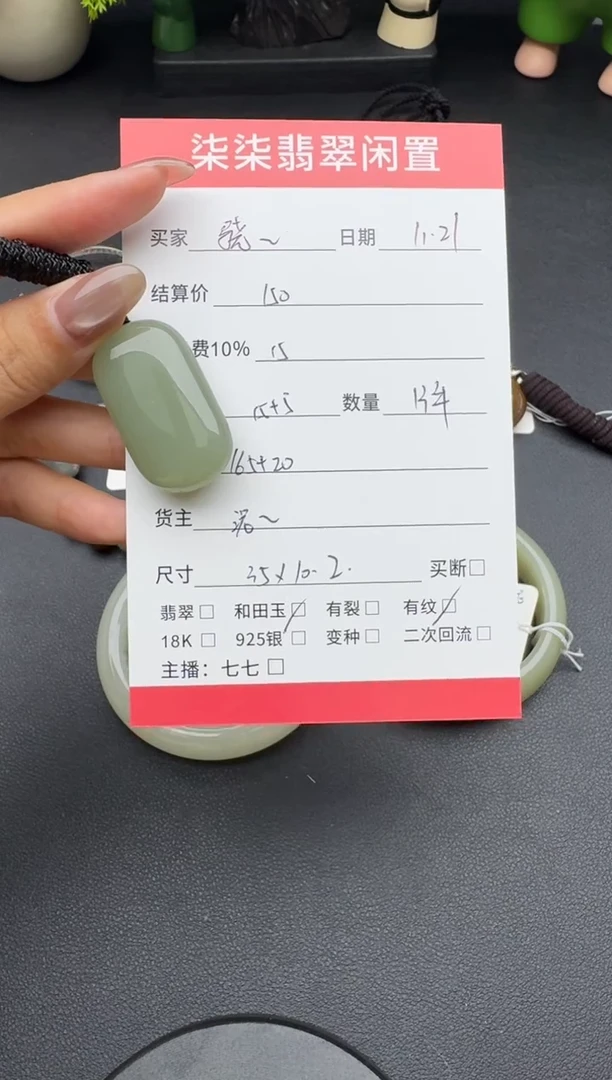 柒柒翡翠闲置
买家 晓~ 日期 11.21
结算价 150
费10% 15
15+5 数量 1件
165+20
货主
尺寸 35×10.2. 买断□
翡翠□ 和田玉☑ 有裂□ 有纹☑
18K□ 925银□ 变种□ 二次回流□
主播：七七□